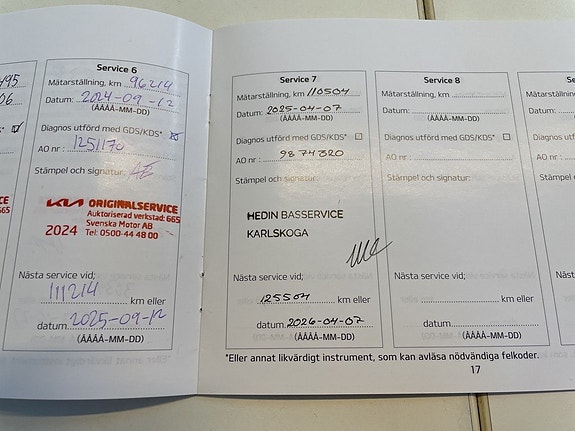 495
06
Service 6
Mätarställning, km 96214
Datum: 2024-09-12
(ÅÅÅÅ-MM-DD)
Diagnos utförd med GDS/KDS*
AO nr : 1251170
Stämpel och signatur:
KIA ORIGINALSERVICE
Auktoriserad verkstad: 665
Svenska Motor AB
2024 Tel: 0500-44 48 00
Nästa service vid;
111214 km eller
datum. 2025-09-12
(ÅÅÅÅ-MM-DD)
665
Service 7
Mätarställning, km 110504
Datum: 2025-04-07
(ÅÅÅÅ-MM-DD)
Diagnos utförd med GDS/KDS*
AO nr : 9874320
Stämpel och signatur:
HEDIN BASSERVICE
KARLSKOGA
Nästa service vid;
125504 km eller
datum. 2026-04-07
(ÅÅÅÅ-MM-DD)
Service 8
Mätarställning, km
Datum:
(ÅÅÅÅ-MM-DD)
Diagnos utförd med GDS/KDS*
AO nr :
Stämpel och signatur:
Nästa service vid;
km eller
datum.
(ÅÅÅÅ-MM-DD)
Se
Mätarställni
Datum:
(Å
Diagnos utför
AO nr :
Stämpel och
Nästa servic
datum.
*Eller annat likvärdigt instrument, som kan avläsa nödvändiga felkoder.
17